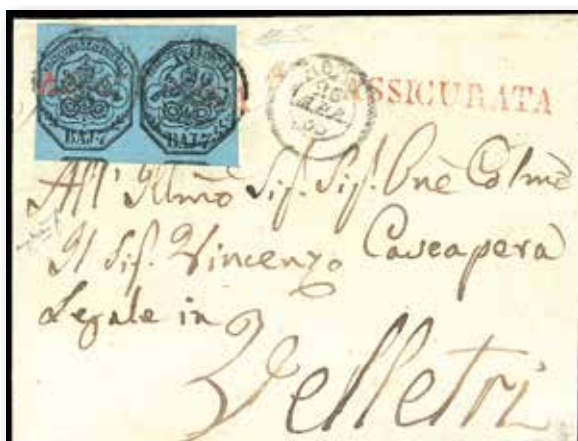 BAJ 7 BAJ 7
ASSICURATA
All' Illmo Sig. Sig. One Colmo
Il Sig. Vincenzo Caseapera
Legale in
Velletri